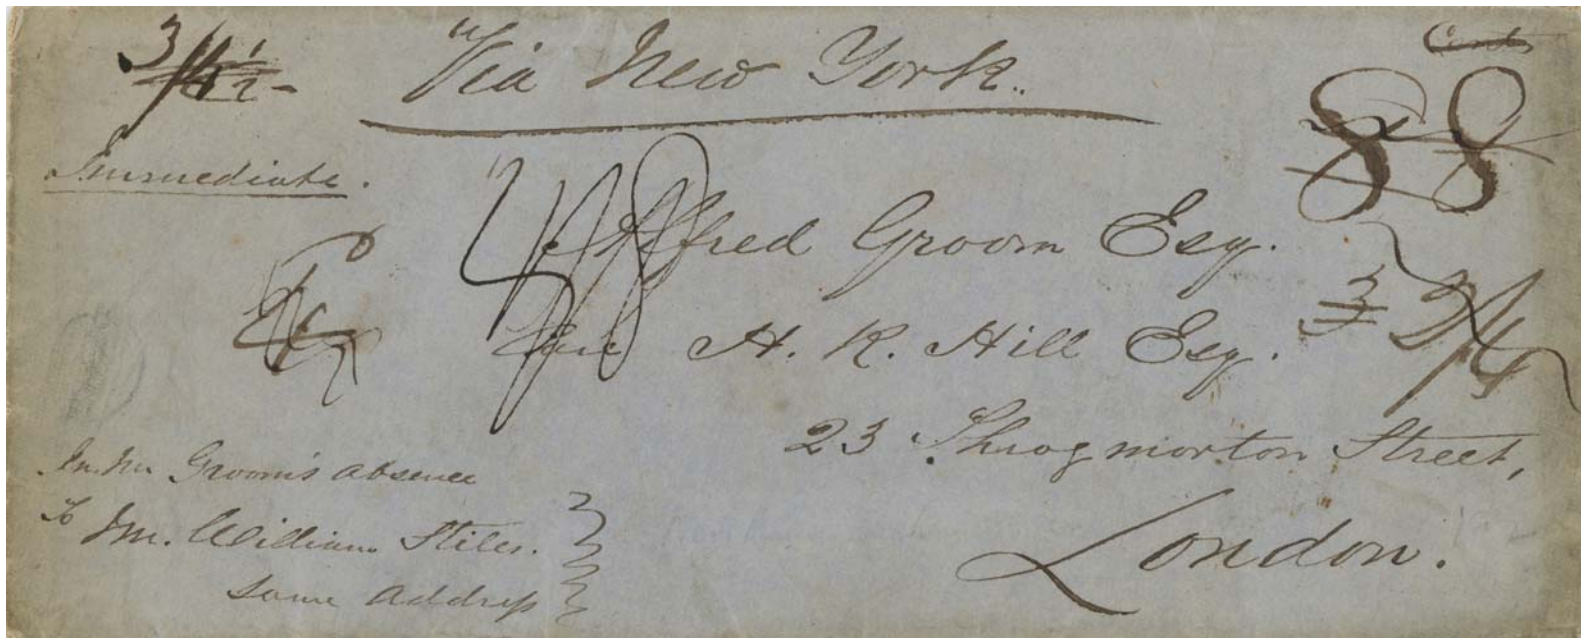 3/4½
"Via New York.
Cents
88
Immediate.
48
Alfred Groom Esq.
H. R. Hill Esq.
3 3/4
23 Throgmorton Street,
London.
In Mr Groom's absence
to Mr. William Stiles.
Same Address